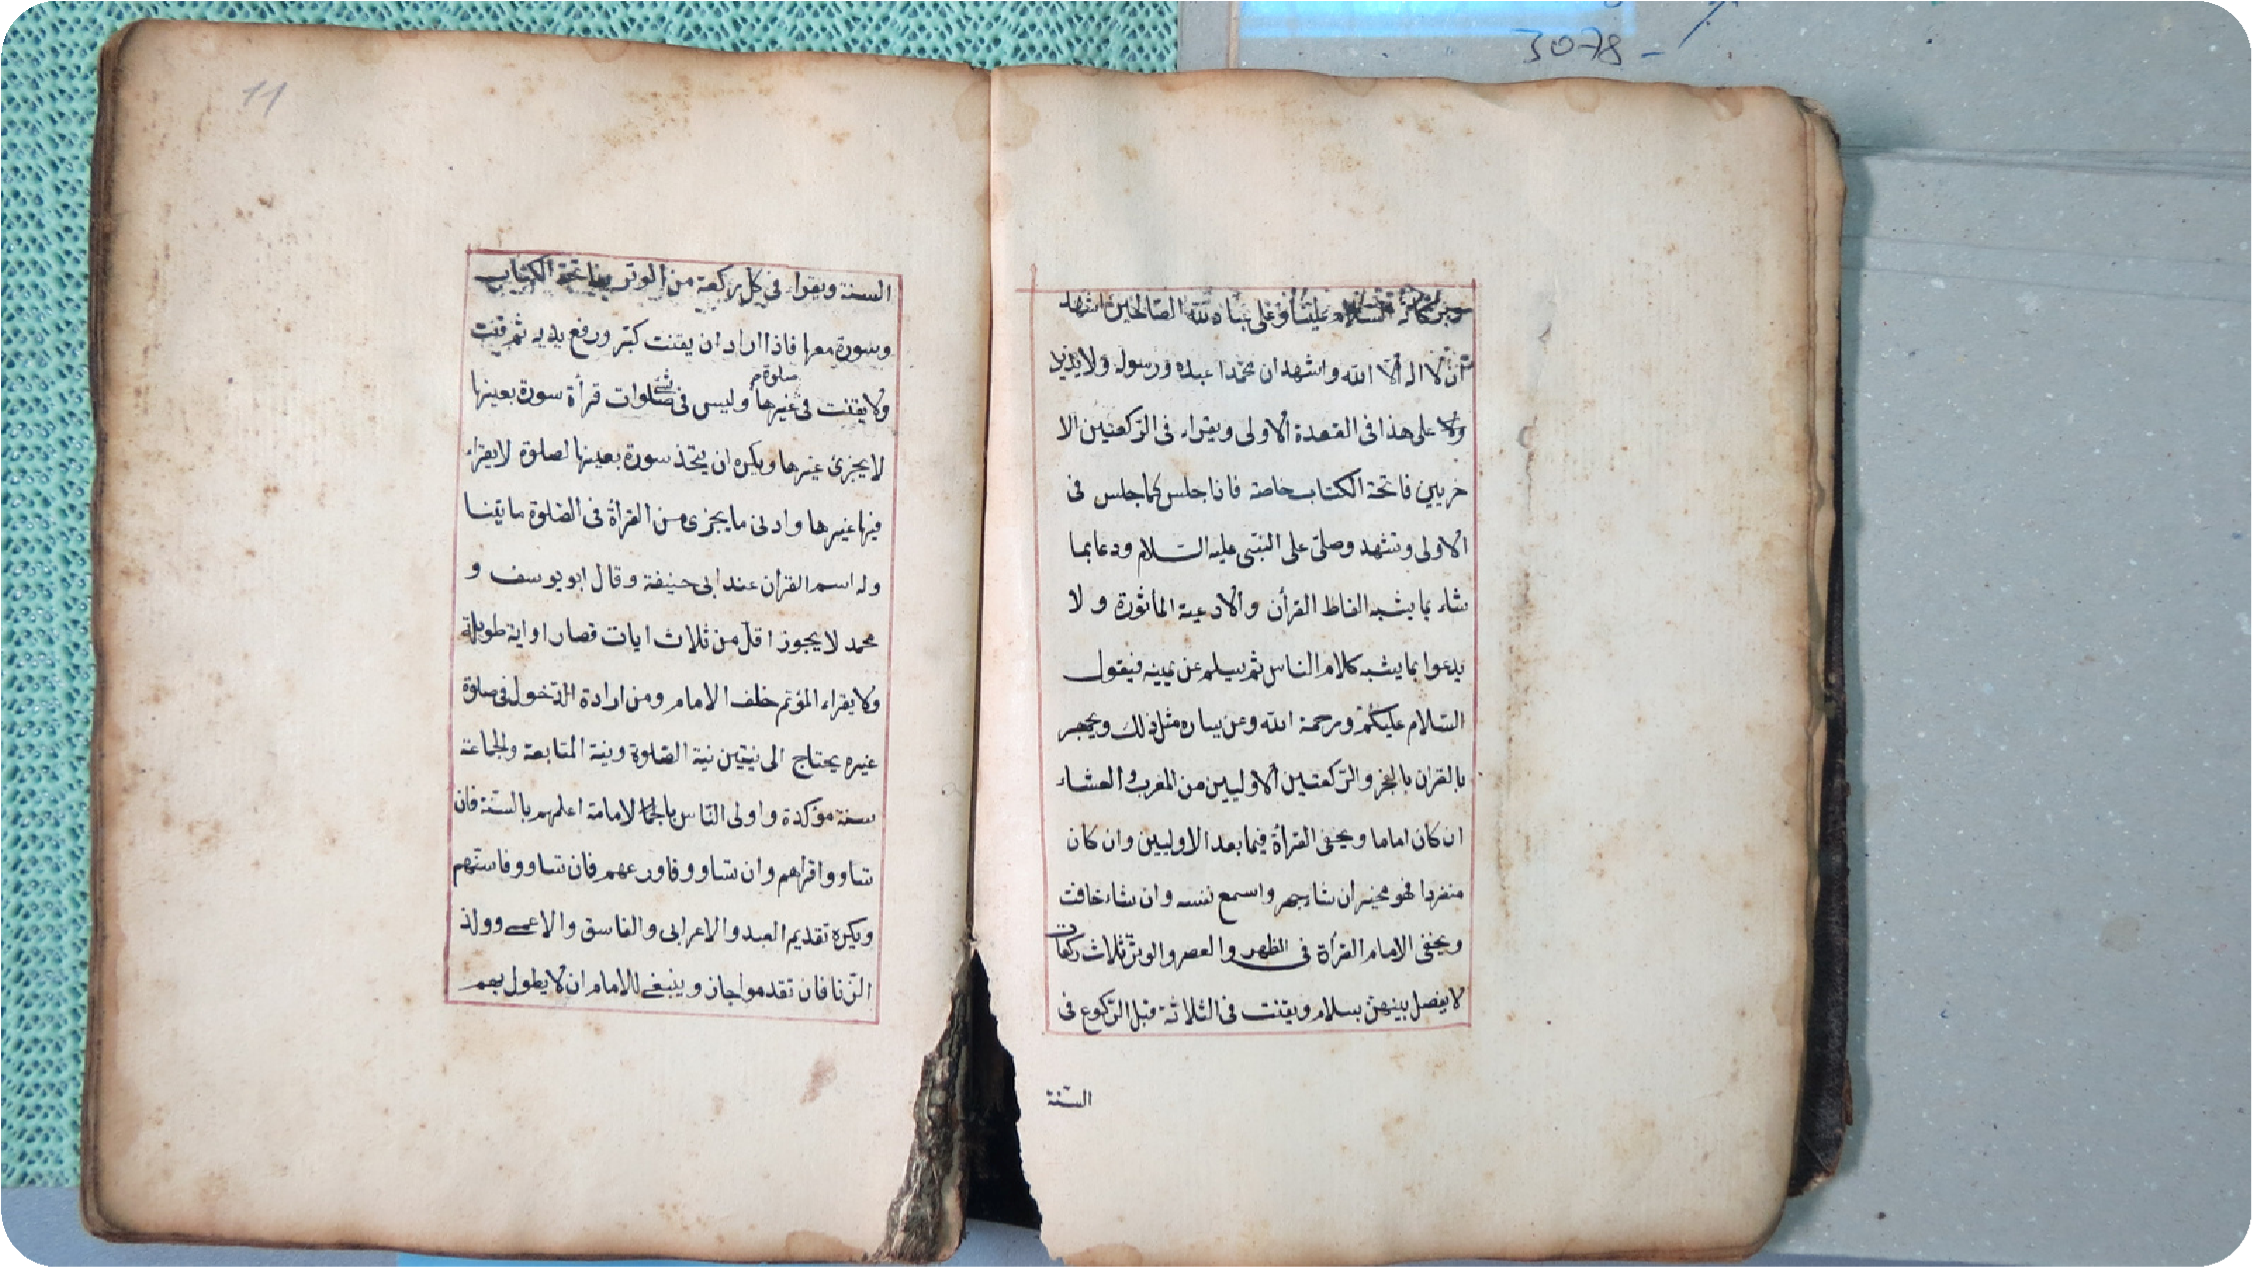 3078-
وبركاته السلام علينا وعلى عباد الله الصالحين اشهد
ان لا اله الا الله واشهد ان محمدا عبده ورسوله ولا يزيد
ولا على هذا فى القعدة الاولى ويقراء فى الركعتين الا
خريين فاتحة الكتاب خاصة فاذا جلس كما جلس فى
الاولى وتشهد وصلى على النبى عليه السلام ودعا بما
شاء بما يشبه الفاظ القرأن والادعية المأثورة و لا
يدعوا بما يشبه كلام الناس ثم يسلم عن يمينه فيقول
السلام عليكم ورحمة الله وعن يساره مثل ذلك ويجهر
بالقران بالفجر والركعتين الاوليين من المغرب والعشاء
ان كان اماما ويخفى القرأة فيما بعد الاوليين وان كان
منفردا فهو مخير ان شاء جهر واسمع نفسه وان شاء خافت
ويخفى الامام القرأة فى الظهر والعصر والوتر ثلاث ركعات
لا يفصل بينهن بسلام ويقنت فى الثلاثة قبل الركوع فى
السنة
11
السنة ويقراء فى كل ركعة من الوتر بفاتحة الكتاب
وسورة معها فاذا اراد ان يقنت كبر ورفع يديه ثم قنت
صلوة م
ولا يقنت فى غيرها وليس فى شئ صلوات قرأة سورة بعينها
لا يجزئ غيرها ويكره ان يتخذ سورة بعينها لصلوة لا يقراء
فيها غيرها وادنى ما يجزى من القرأة فى الصلوة ما يتنا
وله اسم القران عند ابى حنيفة وقال ابو يوسف و
محمد لا يجوز اقل من ثلاث ايات قصار او اية طويلة
ولا يقراء المؤتم خلف الامام ومن ارادة الدخول فى صلوة
غيره يحتاج الى نيتين نية الصلوة ونية المتابعة والجماعة
سنة مؤكدة واولى الناس بالامامة اعلمهم بالسنة فان
تساووا اقرأهم وان تساووا فاورعهم فان تساووا فاسنهم
ويكره تقديم العبد والاعرابى والفاسق والاعمى وولد
الزنا فان تقدموا جاز وينبغى للامام ان لا يطول بهم